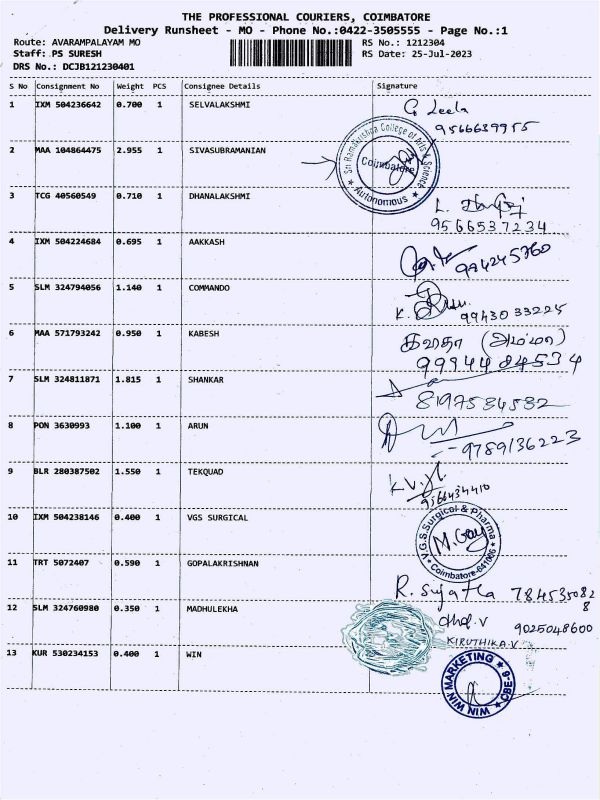 THE PROFESSIONAL COURIERS, COIMBATORE
Delivery Runsheet - MO - Phone No.:0422-3505555 - Page No.:1
Route: AVARAMPALAYAM MO RS No.: 1212304
Staff: PS SURESH RS Date: 25-Jul-2023
DRS No.: DCJB121230401
S No Consignment No Weight PCS Consignee Details Signature
1 IXM 504236642 0.700 1 SELVALAKSHMI G Leela
9566639955
2 MAA 104864475 2.955 1 SIVASUBRAMANIAN
Sri Ramakrishna College of Arts & Science
Coimbatore
Autonomous
3 TCG 40560549 0.710 1 DHANALAKSHMI
9566537234
4 IXM 504224684 0.695 1 AAKKASH
994245760
5 SLM 324794056 1.140 1 COMMANDO
9943033225
6 MAA 571793242 0.950 1 KABESH (அம்மா)
9994484534
7 SLM 324811871 1.815 1 SHANKAR
8197534532
8 PON 3630993 1.100 1 ARUN
9789136223
9 BLR 280387502 1.550 1 TEKQUAD
9566434410
10 IXM 504238146 0.400 1 VGS SURGICAL
V.G.S. Surgical & Pharma
Coimbatore-641006
11 TRT 5072407 0.590 1 GOPALAKRISHNAN
R. Sujatha 7845350828
12 SLM 324760980 0.350 1 MADHULEKHA
9025048600
KIRUTHIKA.V
13 KUR 530234153 0.400 1 WIN
WIN WIN MARKETING
CBE-9